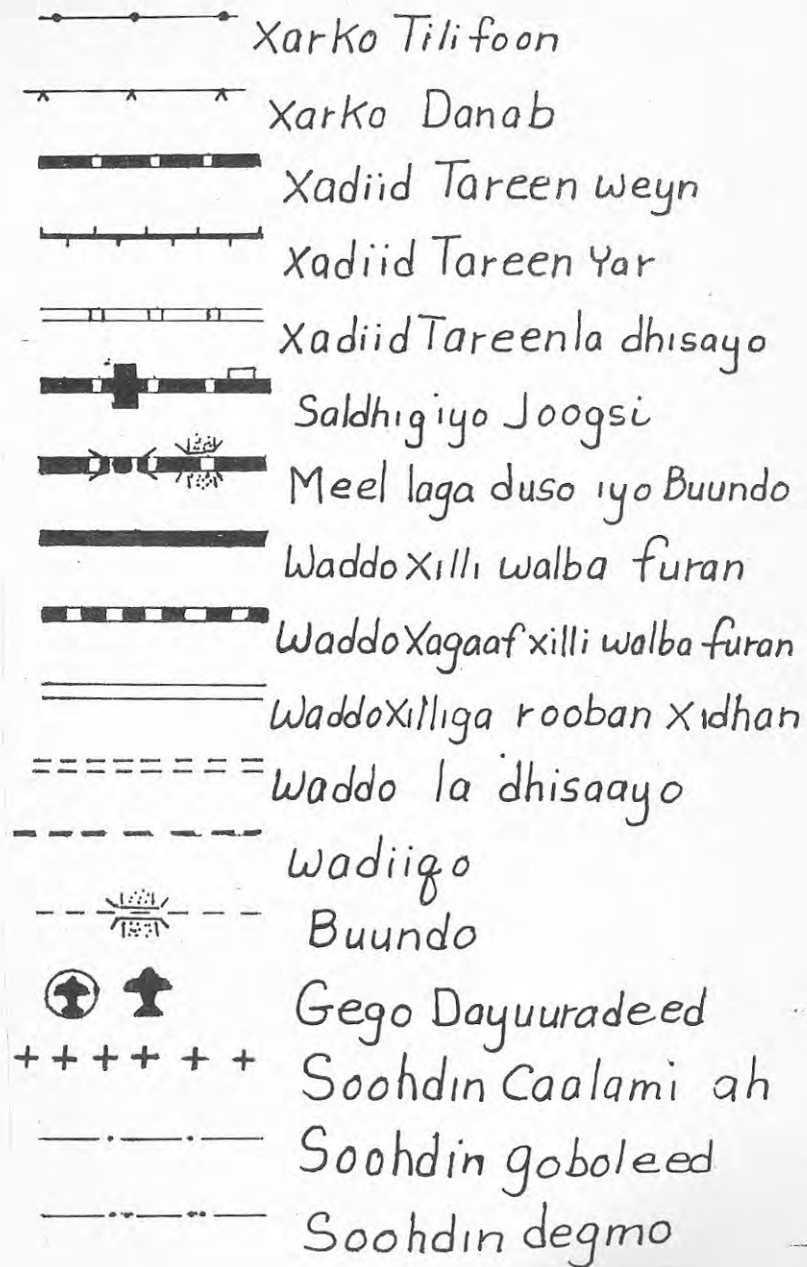 Xarko Tilifoon
Xarko Danab
Xadiid Tareen weyn
Xadiid Tareen Yar
Xadiid Tareen la dhisayo
Saldhig iyo Joogsi
Meel laga duso iyo Buundo
Waddo Xilli walba furan
Waddo Xagaaf xilli walba furan
Waddo Xilliga rooban Xidhan
Waddo la dhisaayo
Wadiiqo
Buundo
Gego Dayuuradeed
Soohdin Caalami ah
Soohdin goboleed
Soohdin degmo